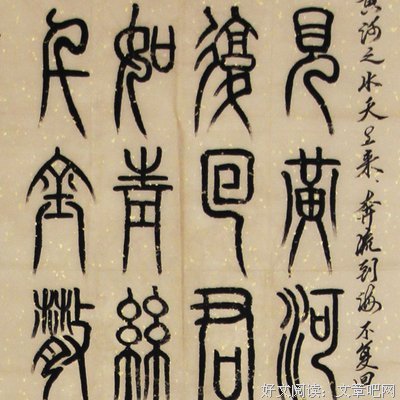 黄河之水天上来、奔流到海不復回
見黃河
復回君
如青絲
千金散
好文阅读：文章吧网